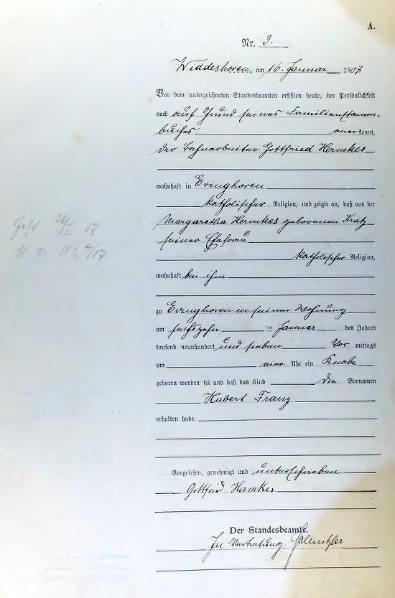 A.
Nr. 3.
Widdeshoven, am 16. Januar 1907
Vor dem unterzeichneten Standesbeamten erschien heute, der Persönlichkeit
nach auf Grund seines Familienstamm-
buches anerkannt,
der Bahnarbeiter Gottfried Hermkes
wohnhaft in Evinghoven
katholischer Religion, und zeigte an, daß von der
Margaretha Hermkes geborenen Kratz
seiner Ehefrau
katholischer Religion,
wohnhaft bei ihm
zu Evinghoven in seiner Wohnung
am sechszehn im Januar des Jahres
tausend neunhundert und sieben Vor mittags
um Uhr ein Knabe
geboren worden sei und daß das Kind die Vornamen
Hubert Franz
erhalten habe.
Vorgelesen, genehmigt und unterschrieben
Gottfried Hermkes
Der Standesbeamte.
In Vertretung